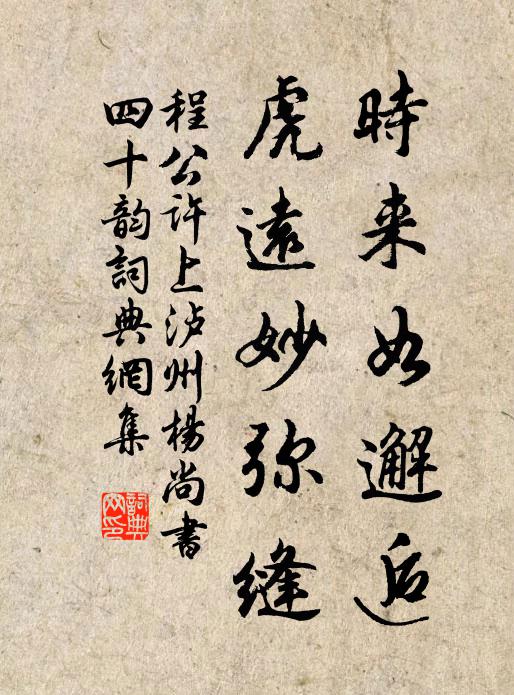 時来如邂逅
虎遠妙弥縫
程公許上泸州楊尚書
四十韵詞典網集
詞典网印